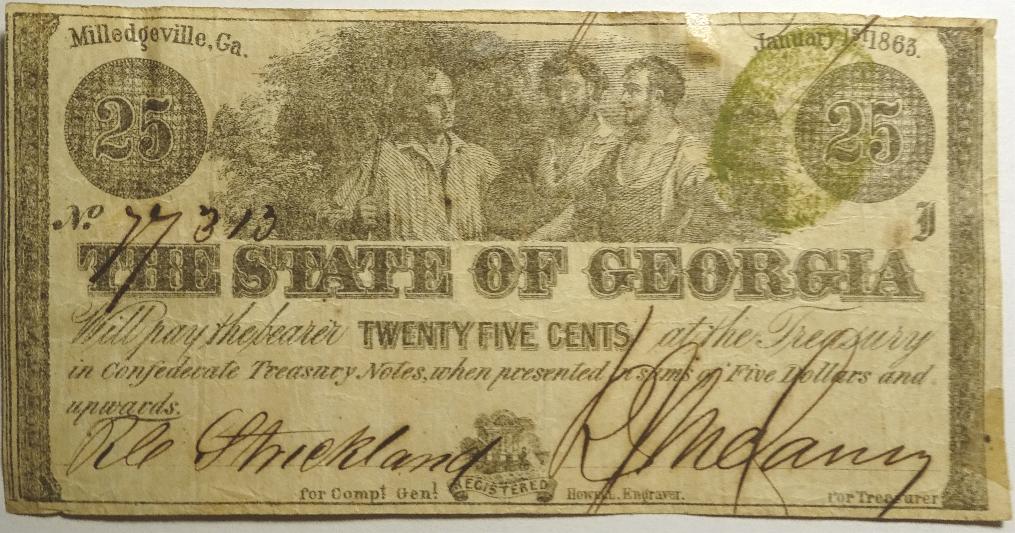 Milledgeville, Ga. January 1st 1863.
25 25
No 77313 J
THE STATE OF GEORGIA
Will pay the bearer TWENTY FIVE CENTS, at the Treasury
in Confederate Treasury Notes, when presented in sums of Five Dollars and
upwards.
Strickland
for Compt Genl REGISTERED Howell, Engraver. for Treasurer